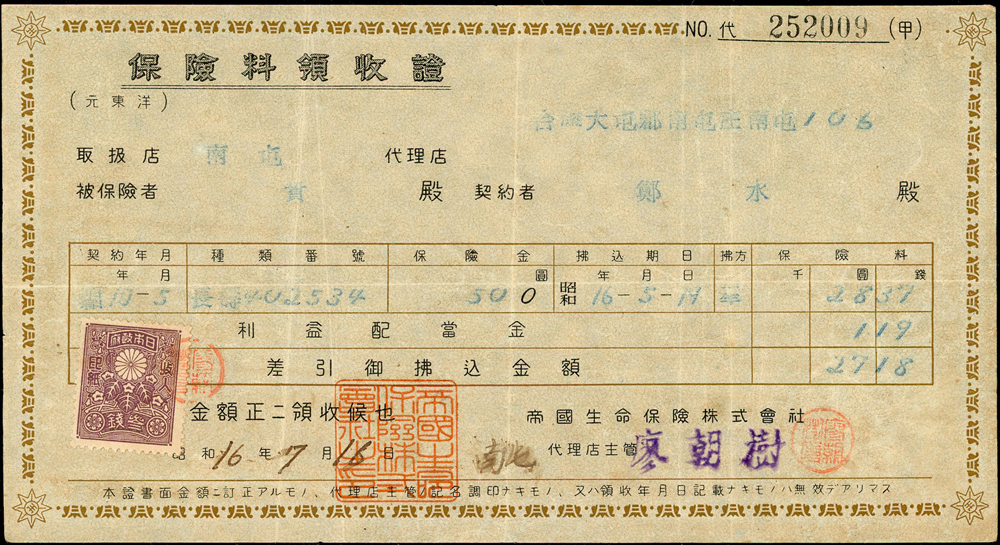 NO. 代 252009 (甲)
保險料領收證
(元東洋)
大屯郡南屯庄南屯106
取扱店 南屯 代理店
被保險者 殿 契約者 鄭 水 殿
契約年月 種類番號 保險金 拂込期日 拂方 保險料
年 月 圓 年 月 日 千 圓 錢
10-5 402534 500 昭和 16-5- 28 37
利益配當金 1 19
差引御拂込金額 27 18
日本政府
收入印紙
參錢
金額正ニ領收候也 帝國生命保險株式會社
昭和16年7月16日 代理店主管 廖朝樹
本證書面金額ニ訂正アルモノ、代理店主管ノ記名調印ナキモノ、又ハ領收年月日記載ナキモノハ無效デアリマス